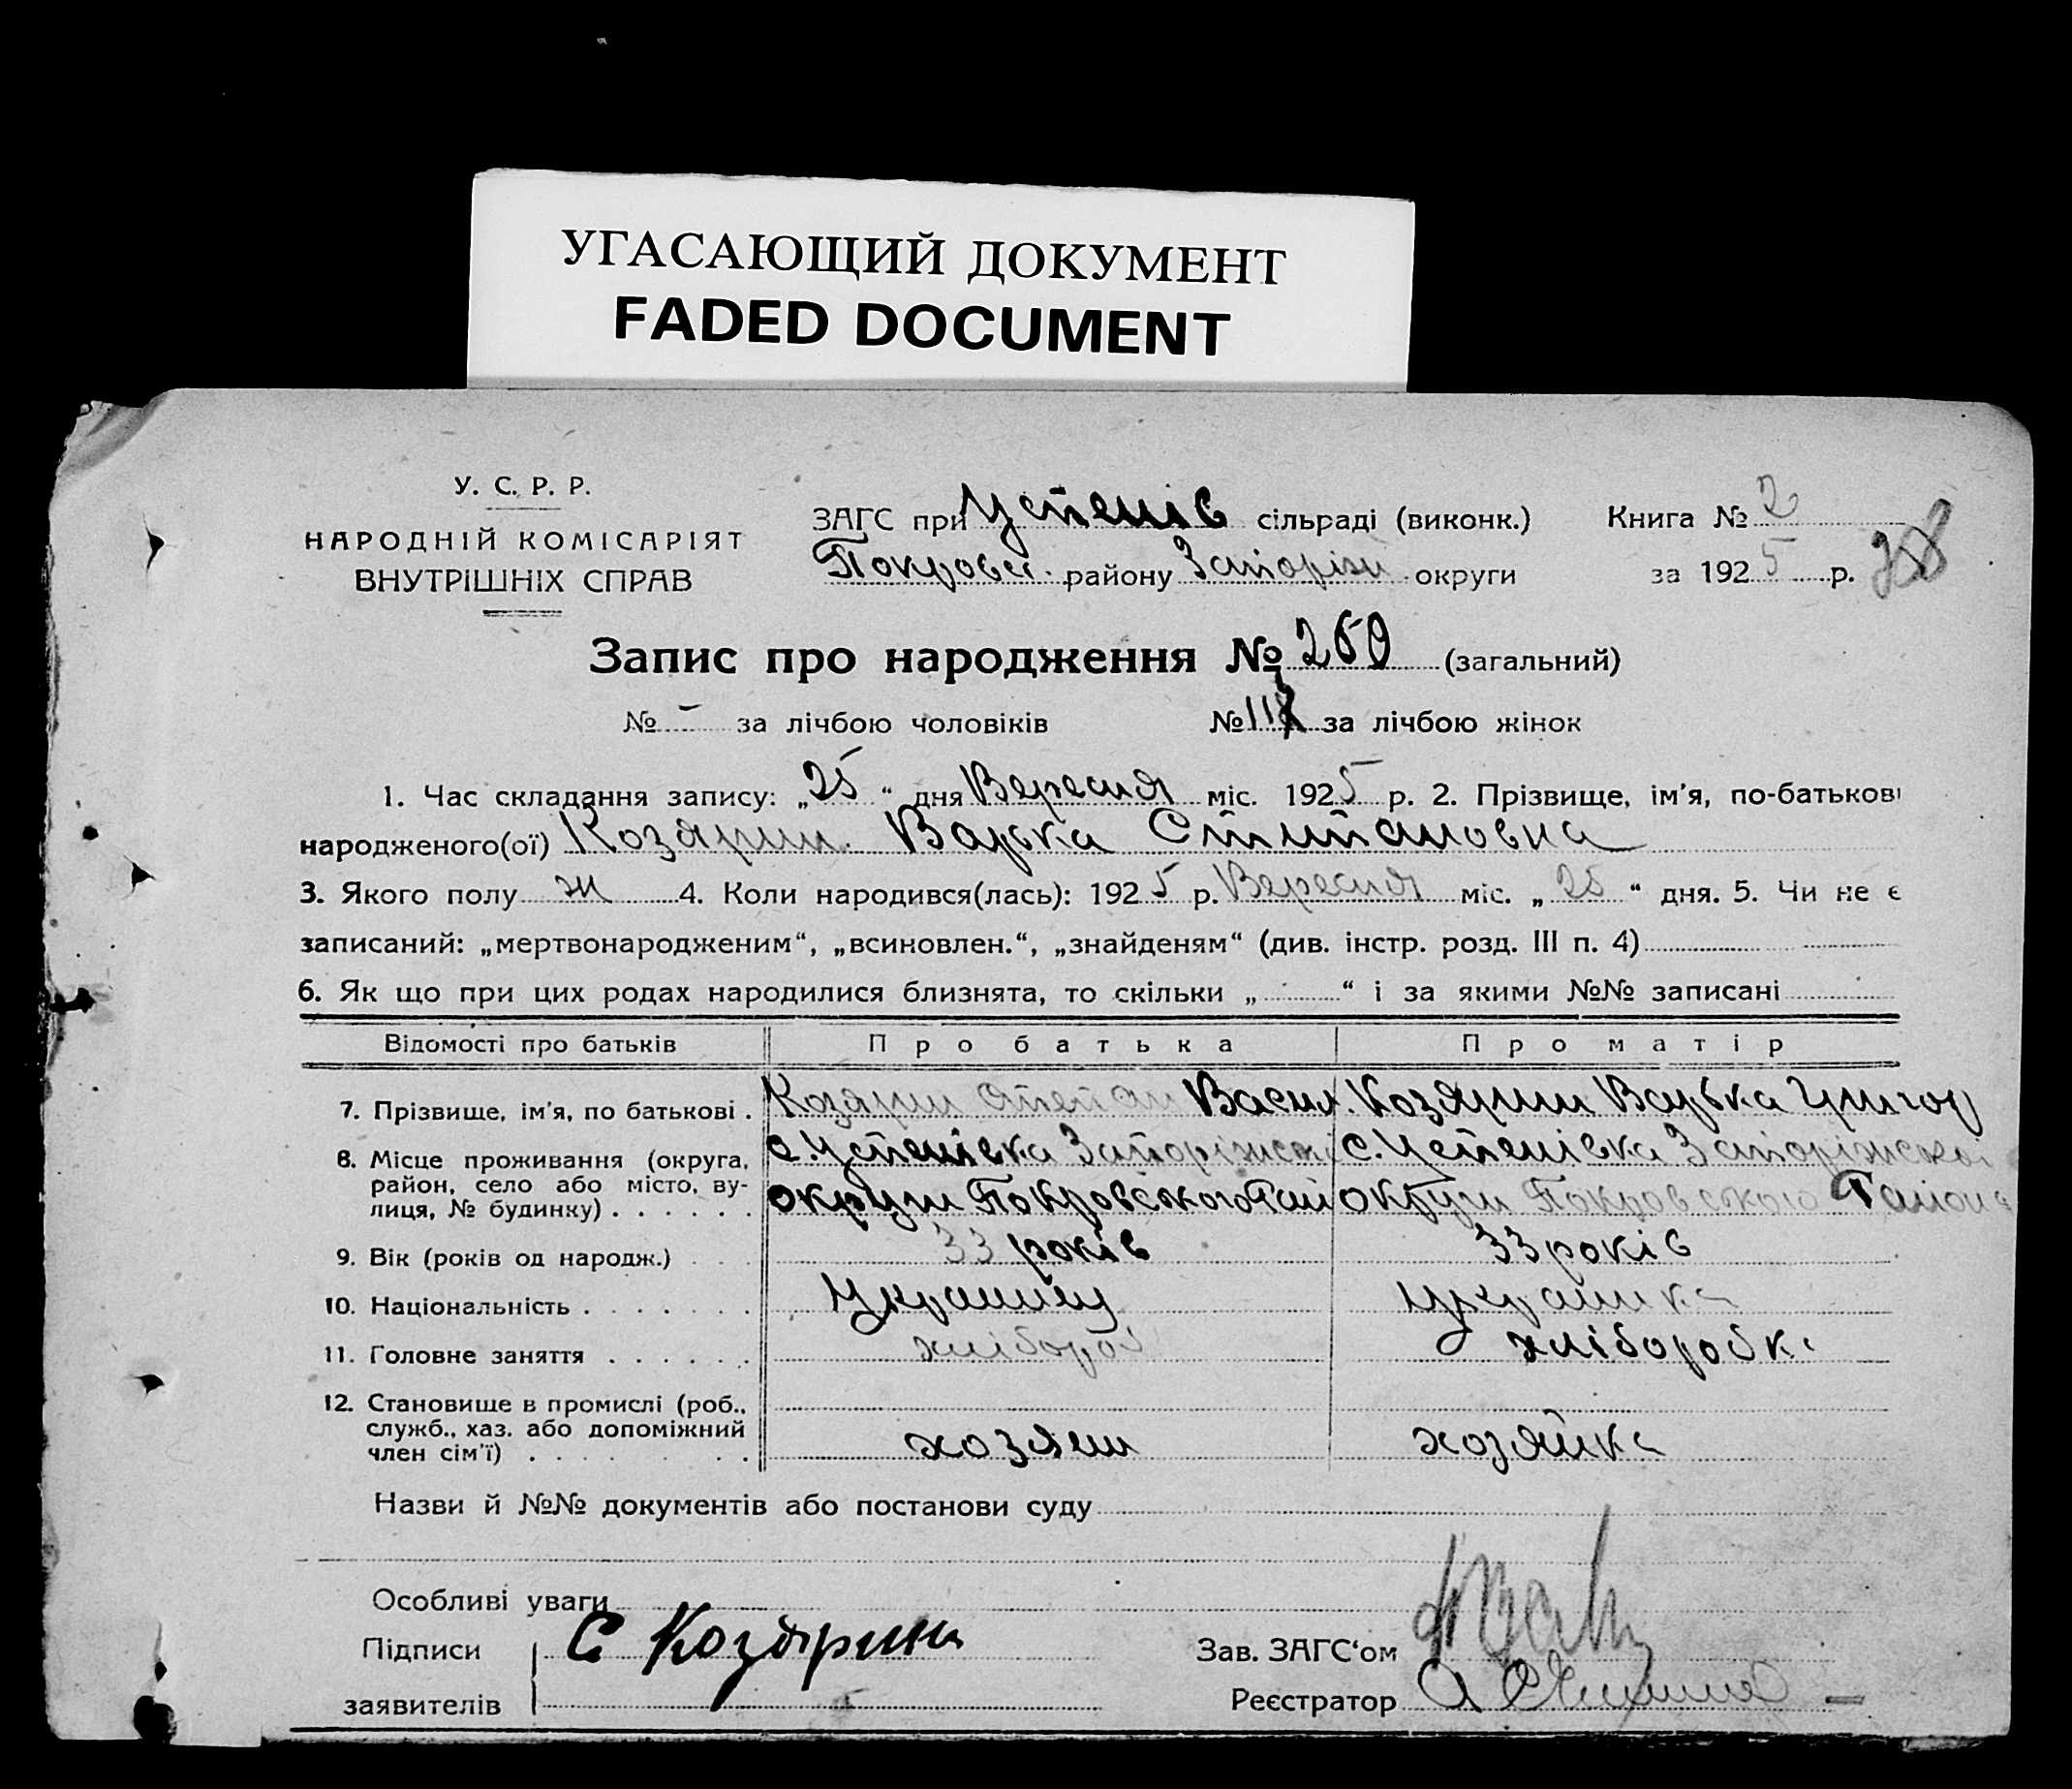 УГАСАЮЩИЙ ДОКУМЕНТ
FADED DOCUMENT
У. С. Р. Р.
НАРОДНІЙ КОМІСАРІЯТ
ВНУТРІШНІХ СПРАВ
ЗАГС при Успенів сільраді (виконк.)
Покровс. району Запоріж округи
Книга № 2
за 1925 р.
Запис про народження № 260 (загальний)
№ - за лічбою чоловіків № 118 за лічбою жінок
1. Час складання запису: „25“ дня Вересня міс. 1925 р. 2. Прізвище, ім'я, по-батькові
народженого(ої) Козярин Варька Стипановна
3. Якого полу ж 4. Коли народився(лась): 1925 р. Вересня міс. „25“ дня. 5. Чи не є
записаний: „мертвонародженим“, „всиновлен.“, „знайденям“ (див. інстр. розд. III п. 4)
6. Як що при цих родах народилися близнята, то скільки „ “ і за якими №№ записані
Відомості про батьків Про батька Про матір
7. Прізвище, ім'я, по батькові . Козярин Степан Васил. Козярин Варька Григор
8. Місце проживання (округа, район, село або місто, ву-лиця, № будинку) . . . . . .
с. Успенівка Запоріжськ с. Успенівка Запоріжскої
округи Покровського Рай округи Покровського Району
9. Вік (років од народж.) . . . 33 років 33 років
10. Національність . . . . . . . Українец Українка
11. Головне заняття . . . . . . хлібороб хліборобка
12. Становище в промислі (роб., служб., хаз. або допоміжний член сім'ї) . . . . . . хозяин хозяйка
Назви й №№ документів або постанови суду
Особливі уваги
Підписи
заявителів
С Козярин
Зав. ЗАГС'ом
Реєстратор